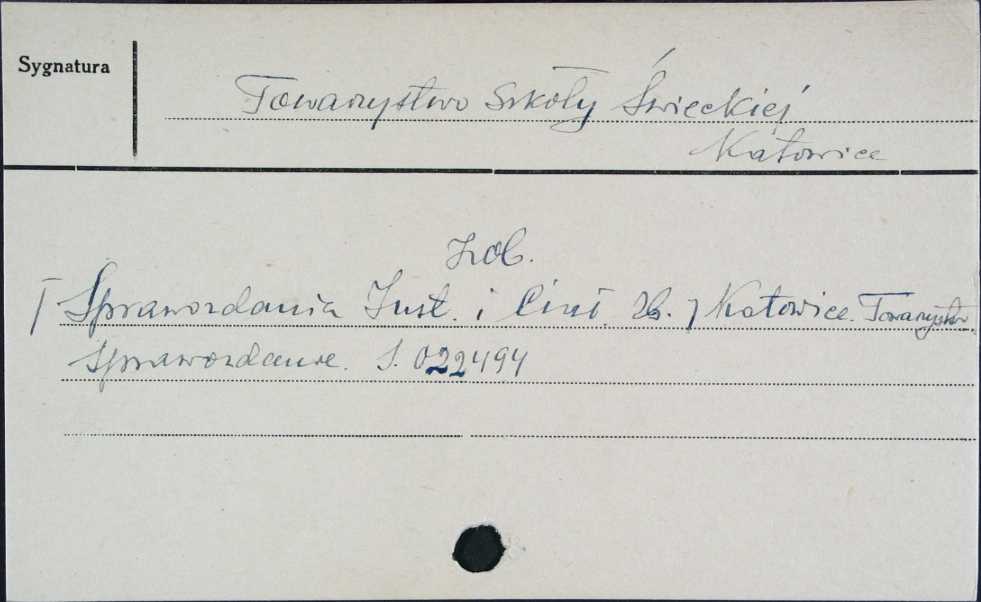 Sygnatura
Towarzystwo Szkoły Świeckiej
Katowice
Zob.
[Sprawozdania Inst. i Czas. Zb.] Katowice. Towarzystwo
Sprawozdanie. S. 022494